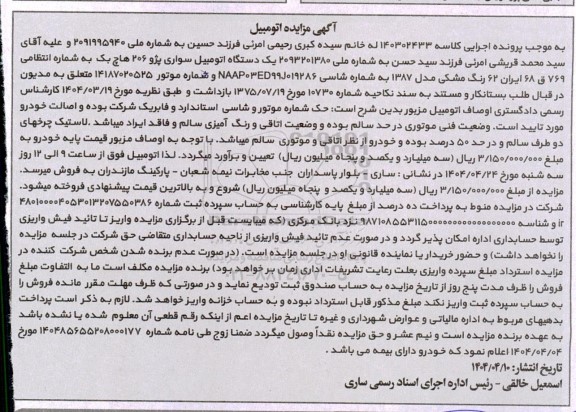 آگهی مزایده اتومبیل
به موجب پرونده اجرایی کلاسه ۱۴۰۳۰۲۴۳۳ له خانم سیده کبری رحیمی امرئی فرزند حسین به شماره ملی ۲۰۹۱۹۹۵۹۴۰ و علیه آقای
سید محمد قریشی امرئی فرزند سید حسن به شماره ملی ۲۰۹۳۲۰۱۳۸۰ یک دستگاه اتومبیل سواری پژو ۲۰۶ هاچ بک به شماره انتظامی
۷۶۹ ق ۶۸ ایران ۶۲ رنگ مشکی مدل ۱۳۸۷ به شماره شاسی NAAP03ED99J019286 و شماره موتور ۱۴۱۸۷۰۲۰۵۲۵ متعلق به مدیون
در قبال طلب بستانکار و مستند به سند نکاحیه شماره ۱۰۷۳۰ مورخ ۱۳۷۵/۰۷/۱۹ بازداشت و طبق نظریه مورخ ۱۴۰۴/۰۳/۱۹ کارشناس
رسمی دادگستری اوصاف اتومبیل مزبور بدین شرح است: حک شماره موتور و شاسی استاندارد و فابریک شرکت بوده و اصالت خودرو
مورد تایید است. وضعیت فنی موتوری در حد سالم بوده و وضعیت اتاقی و رنگ آمیزی سالم و فاقد ایراد میباشد .لاستیک چرخهای
دو طرف سالم و در حد ۵۰ درصد بوده و خودرو از نظر اتاقی و موتوری سالم میباشد. با توجه به اوصاف مزبور قیمت پایه خودرو به
مبلغ ۳/۱۵۰/۰۰۰/۰۰۰ ریال (سه میلیارد و یکصد و پنجاه میلیون ریال) تعیین و برآورد میگردد. لذا اتومبیل فوق از ساعت ۹ الی ۱۲ روز
سه شنبه مورخ ۱۴۰۴/۰۴/۲۴ در نشانی : ساری - بلوار پاسداران جنب مخابرات نیمه شعبان - پارکینگ مازندران به فروش میرسد.
مزایده از مبلغ ۳/۱۵۰/۰۰۰/۰۰۰ ریال (سه میلیارد و یکصد و پنجاه میلیون ریال) شروع و به بالاترین قیمت پیشنهادی فروخته میشود.
شرکت در مزایده منوط به پرداخت ده درصد از مبلغ پایه کارشناسی به حساب سپرده ثبت شماره
ir و شناسه نزد بانک مرکزی (که میبایست قبل از برگزاری مزایده واریز تا تائید فیش واریزی
توسط حسابداری اداره امکان پذیر گردد و در صورت عدم تائید فیش واریزی از ناحیه حسابداری متقاضی حق شرکت در جلسه مزایده
را نخواهد داشت) و حضور خریدار یا نماینده قانونی او در جلسه مزایده است. (در صورت عدم برنده شدن شخص شرکت کننده در
مزایده استرداد مبلغ سپرده واریزی بعلت رعایت تشریفات اداری زمان بر خواهد بود) برنده مزایده مکلف است ما به التفاوت مبلغ
فروش را ظرف مدت پنج روز از تاریخ مزایده به حساب صندوق ثبت تودیع نماید و در صورتی که ظرف مهلت مقرر مانده فروش را
به حساب سپرده ثبت واریز نکند مبلغ مذکور قابل استرداد نبوده و به حساب خزانه واریز خواهد شد. لازم به ذکر است پرداخت
بدهیهای مربوط به اداره مالیاتی و عوارض شهرداری و غیره تا تاریخ مزایده اعم از اینکه رقم قطعی آن معلوم شده یا نشده باشد
به عهده برنده مزایده است و نیم عشر و حق مزایده نقداً وصول میگردد ضمنا زوج طی نامه شماره ۱۴۰۴۸۵۶۵۵۲۰۸۰۰۰۱۷۷ مورخ
۱۴۰۴/۰۴/۰۴ اعلام نمود که خودرو دارای بیمه می باشد .
تاریخ انتشار: ۱۴۰۴/۰۴/۱۰
اسمعیل خالقی - رئیس اداره اجرای اسناد رسمی ساری